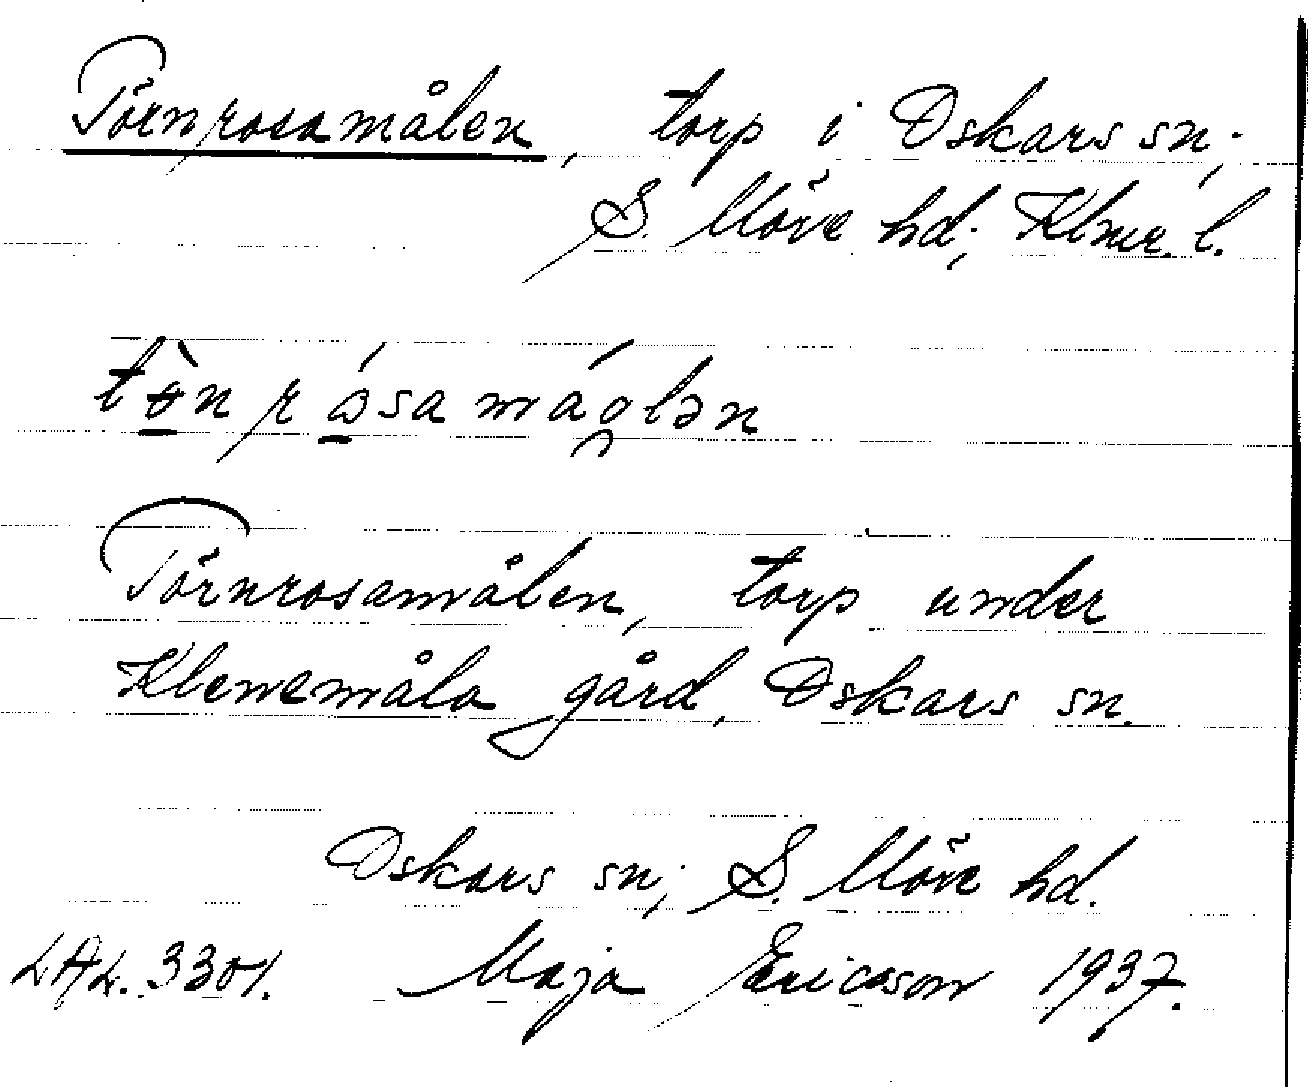 Törnrosamålen, torp i Oskars sn;
S. Möre hd; Klmr. l.
Törnrosamålen, torp under
Klennemåla gård, Oskars sn.
Oskars sn; S. Möre hd.
LAL. 3301. Maja Ericsson 1937.